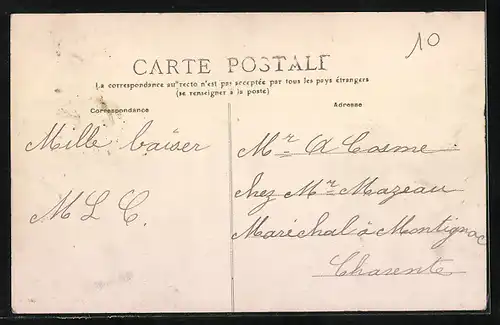 10
CARTE POSTALE
La correspondance au recto n'est pas acceptée par tous les pays étrangers
(se renseigner à la poste)
Correspondance
Adresse
Mille baiser
M L C.
Mr A Cosme
chez Mr Mazeau
Maréchal à Montignac
Charente